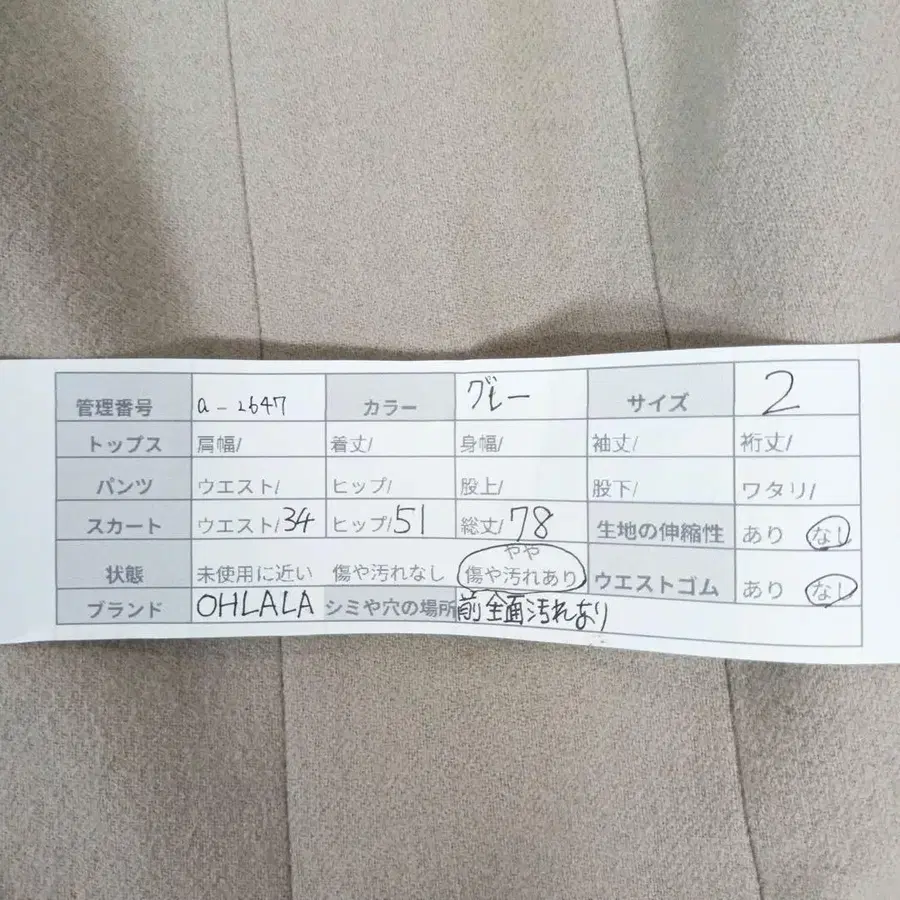 管理番号 a-2647 カラー グレー サイズ 2
トップス 肩幅/ 着丈/ 身幅/ 袖丈/ 裄丈/
パンツ ウエスト/ ヒップ/ 股上/ 股下/ ワタリ/
スカート ウエスト/34 ヒップ/51 総丈/78 生地の伸縮性 あり なし
状態 未使用に近い 傷や汚れなし やや傷や汚れあり ウエストゴム あり なし
ブランド OHLALA シミや穴の場所 前全面汚れあり